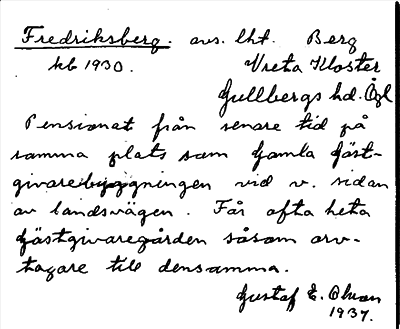 Fredriksberg. avs. lht. Berg
kb 1930. Vreta Kloster
Gullbergs hd. Ögl
Pensionat från senare tid på
samma plats som Gamla Gäst-
givarebyggningen vid v. sidan
av landsvägen. Får ofta heta
Gästgivaregården såsom arv-
tagare till densamma.
Gustaf E. Olson
1937.